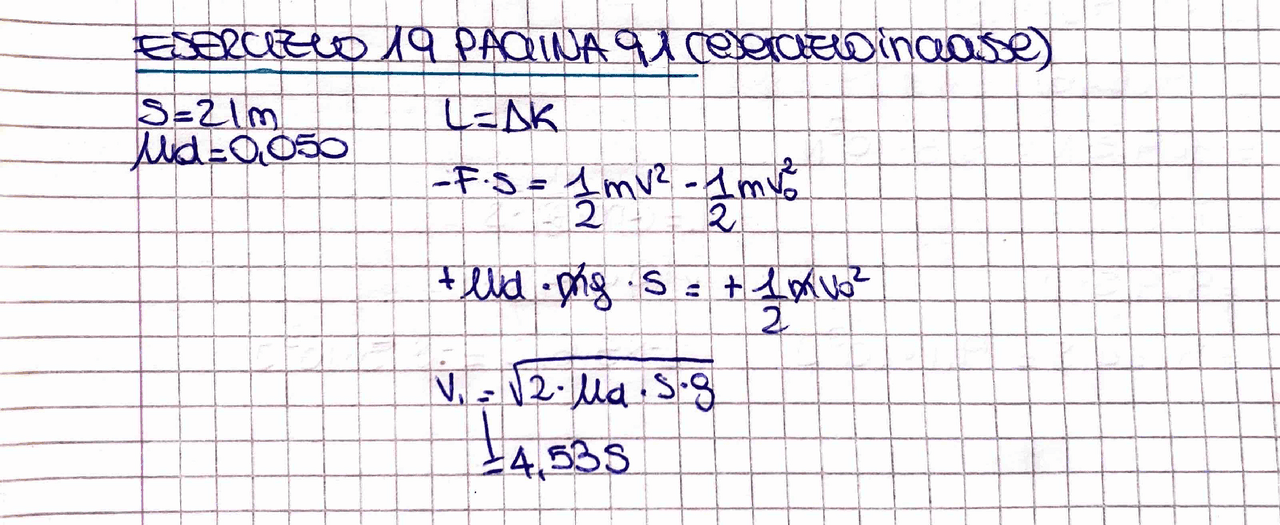 ESERCIZIO 19 PAGINA 91 (esercizio in classe)
S=21m L=ΔK
μd=0,050
-F·S = 1/2 mv² - 1/2 mv₀²
+μd·mg·S = + 1/2 mv₀²
V₁ = √2·μd·S·g
=4,53S